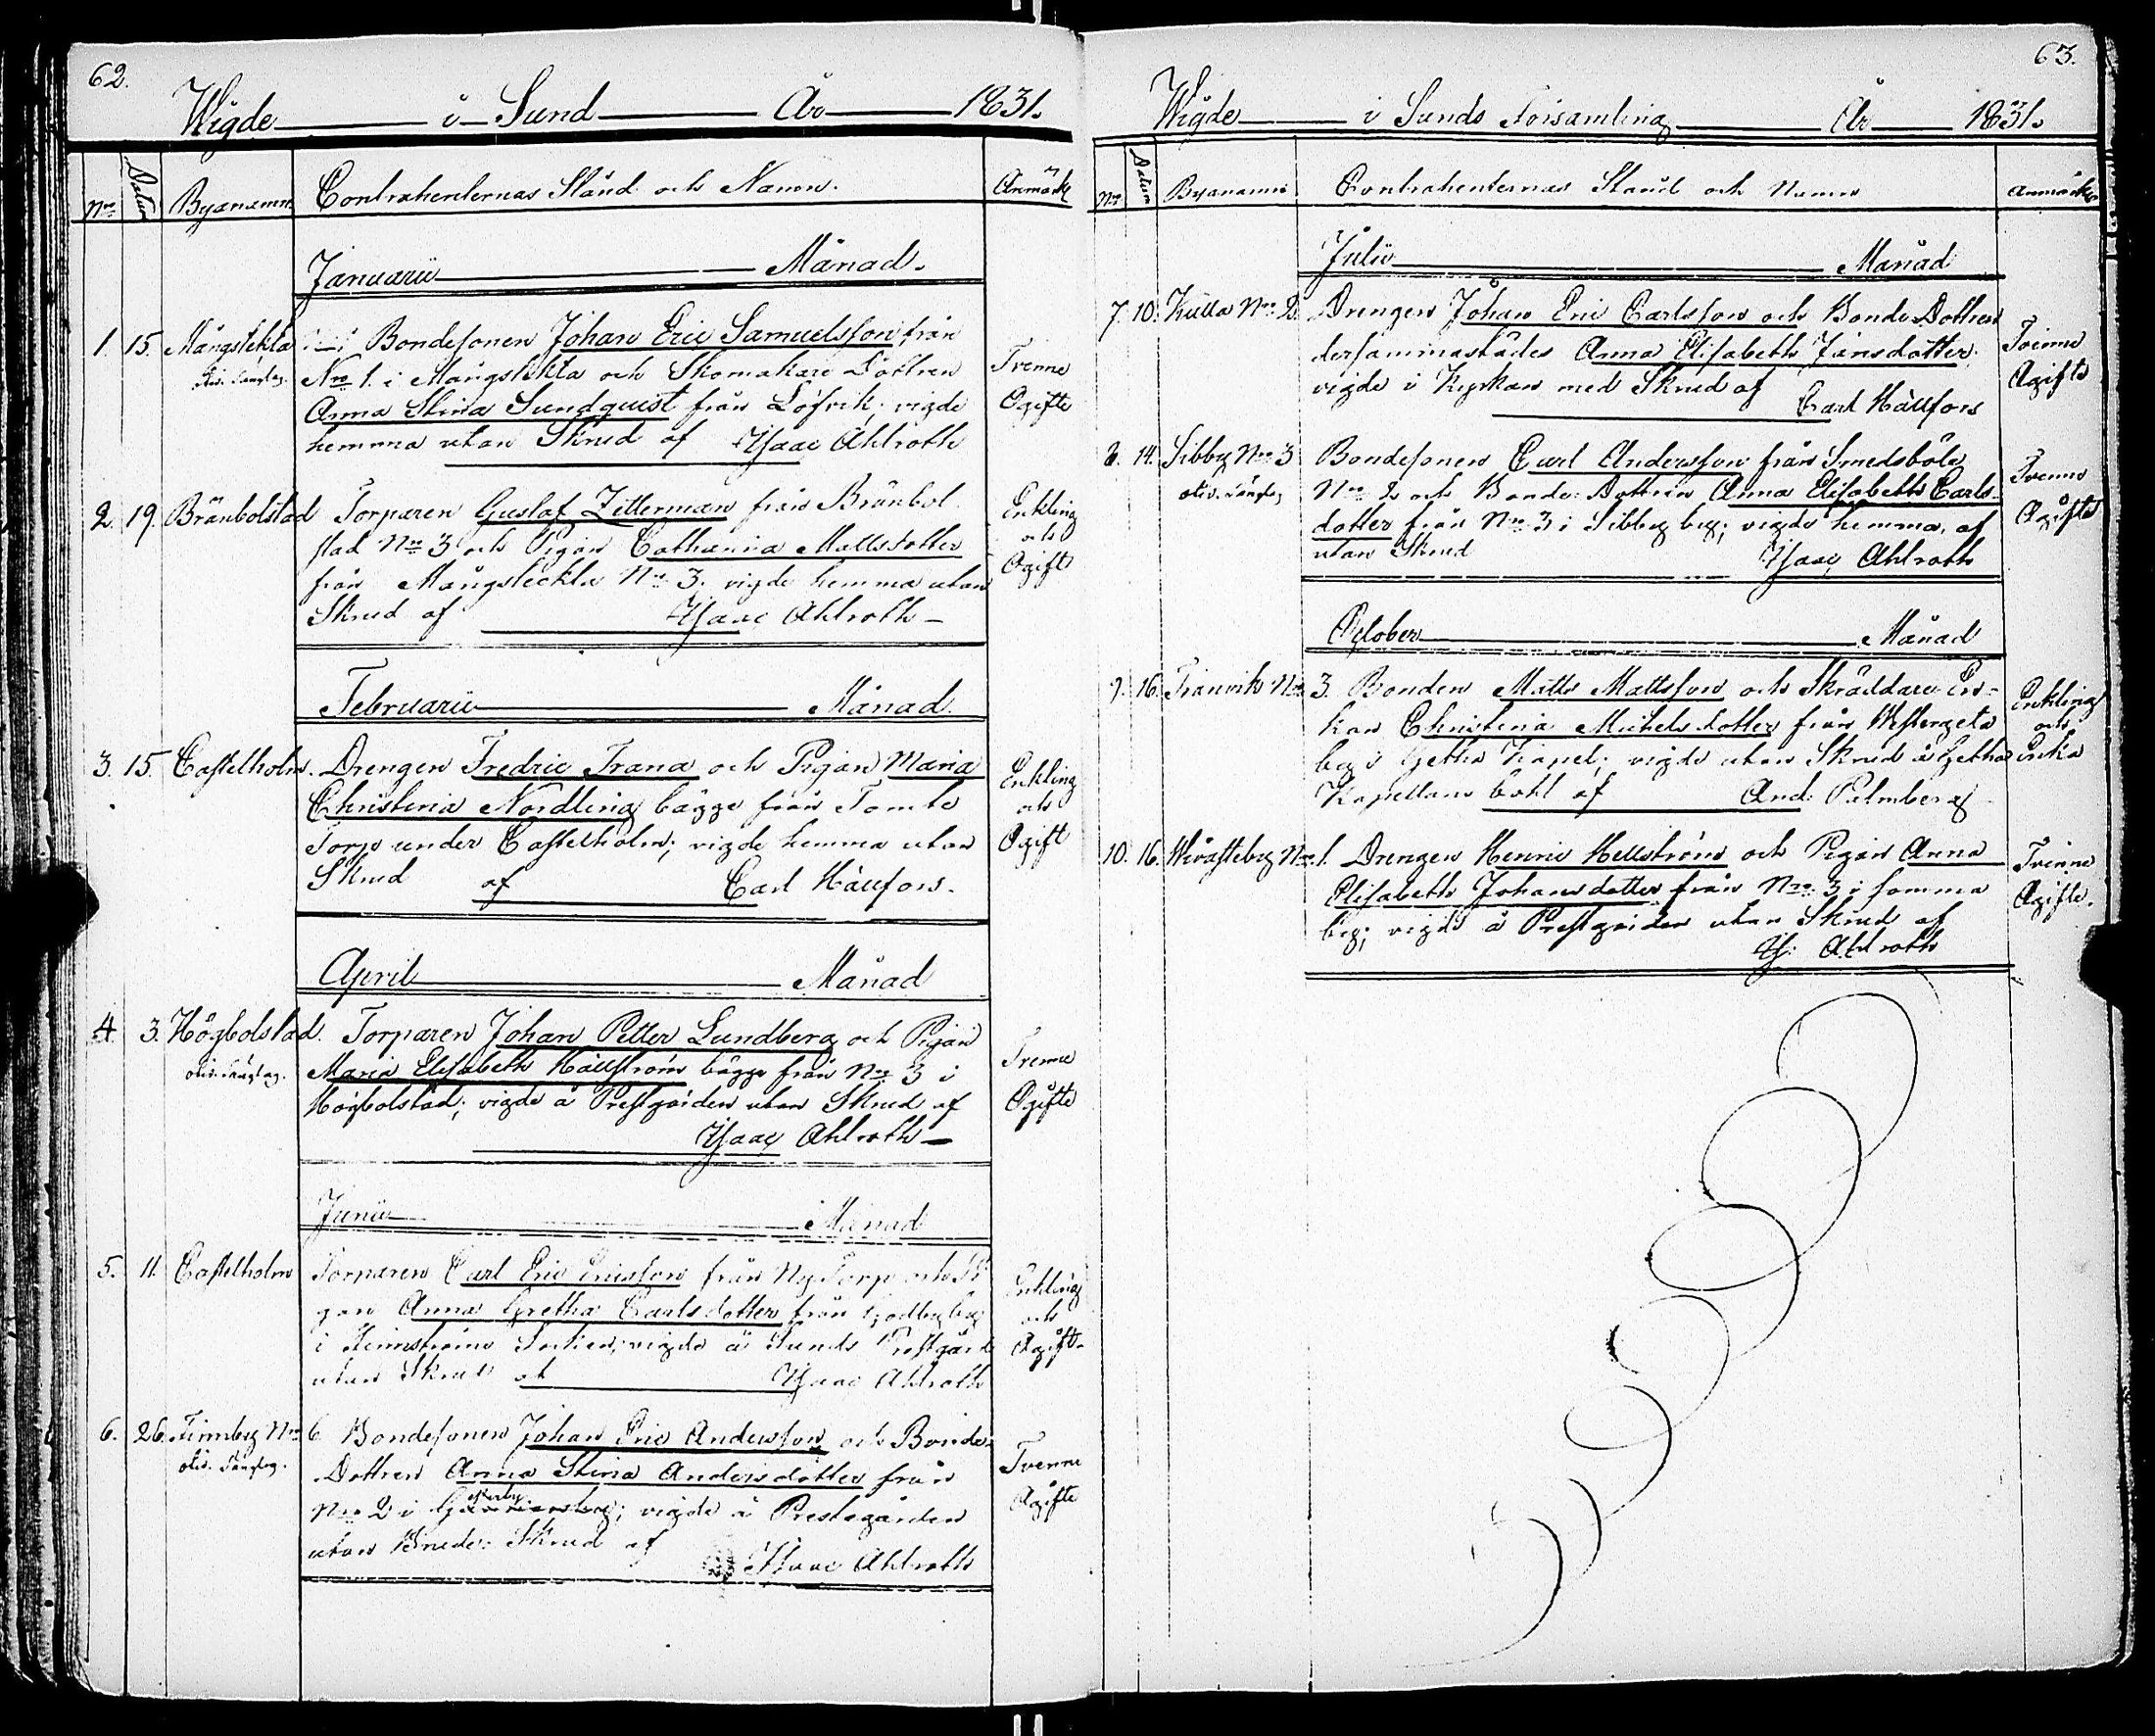 62.
Wigde i Sund År 1831.
Nro Datum Byanamn Contrahenternas Stånd och Namn. Anmärk
Januarii Månad.
1. 15. Mångstekta Bondesonen Johan Eric Samuelsson från
Nro 1. i Mångstekta och Skomakare Dottren Tvenne
Anna Stina Sundquist från Löfvik; vigde Ogifte
hemma utan Skrud af Isaac Ahlroth
2. 19. Brånbolstad Torparen Gustaf Zitterman från Brånbol Enkling
stad Nro 3 och Pigan Catharina Mattsdotter och
från Mångsteckta Nro 3. vigde hemma utan Ogift
Skrud af Isaac Ahlroth
Februarii Månad.
3. 15. Castelholm. Drengen Fredric Frana och Pigan Maria Enkling
Christina Nordling bägge från Tomte och
Torp under Castelholm; vigde hemma utan Ogift
Skrud af Carl Hällfors.
April Månad
4. 3. Högbolstad. Torparen Johan Petter Lundberg och Pigan
Maria Elisabeth Hällström bägge från Nro 3 i Tvenne
Högbolstad; vigde å Prestgården utan Skrud af Ogifte
Isaac Ahlroth
Junii Månad
5. 11. Castelholm Torparen Carl Eric Ericsson från Ny Torp och Pi Enkling
gan Anna Gretha Carlsdotter från Godby by och
i Finnströms Socken; vigde å Sunds Prestgård Ogift
utan Skrud af Isaac Ahlroth
6. 26. Finnby Nro 6 Bondesonen Johan Eric Andersson och Bonde
Dottren Anna Stina Andersdotter från Tvenne
Nro 2 i vigde å Prestegården Ogifte
utan Brude-Skrud af Isaac Ahlroth
63.
Wigde i Sunds Församling År 1831.
Nro Datum Byanamn Contrahenternas Stånd och Namn Anmärk
Julii Månad
7. 10. Kulla Nro 2. Drengen Johan Eric Carlsson och Bonde Dottren
dersammastädes Anna Elisabeth Jansdotter; Tvenne
vigde i Kyrkan med Skrud af Ogifte
Carl Hällfors
8. 14. Sibby Nro 3 Bondesonen Carl Andersson från Smedsböle
Nro 2 och Bonde-Dottren Anna Elisabeth Carls- Tvenne
dotter från Nro 3 i Sibby by; vigde hemma, af Ogifte
utan Skrud Isaac Ahlroth
October Månad
9. 16. Tranvik Nro 3. Bonden Matts Mattsson och Skräddare En- Enkling
kan Christina Michelsdotter från Westergeta och
by i Getha Kapel; vigde utan Skrud å Getha Enka
Kapellans bohl af And: Palmberg
10. 16. Nro 1. Drengen Henric Hellström och Pigan Anna Tvenne
Elisabeth Johansdotter från Nro 3 i samma Ogifte.
by; vigde å Prestgården utan Skrud af
Is: Ahlroth